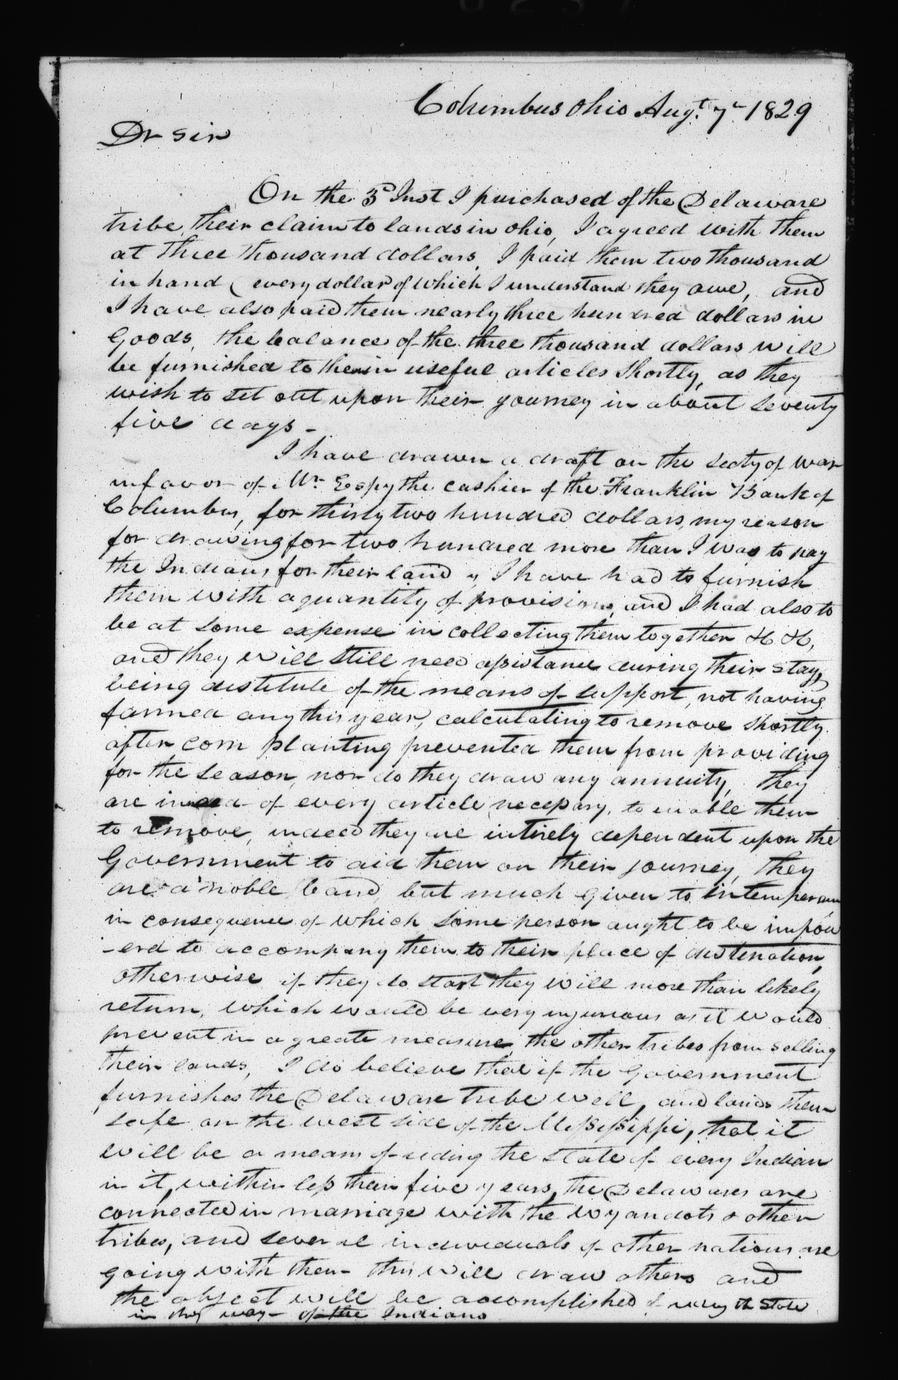 Columbus Ohio Augt. 7th 1829
Dr Sir
On the 3d Inst I purchased of the Delaware
tribe, their claim to lands in ohio, I agreed with them
at three thousand dollars, I paid them two thousand
in hand (every dollar of which I understand they owe, and
I have also paid them nearly three hundred dollars in
Goods, the balance of the three thousand dollars will
be furnished to them in useful articles Shortly, as they
wish to set out upon their journey in about Seventy
five days -
I have drawn a draft on the Secty of War
in favor of Mr Espy the cashier of the Franklin Bank of
Columbus, for thirty two hundred dollars, my reason
for drawing for two hundred more than I was to pay
the Indians for their land is, I have had to furnish
them with a quantity of provisions, and I had also to
be at some expense in collecting them together &c &c,
and they will still need assistance during their stay,
being destitute of the means of support, not having
farmed any this year, calculating to remove shortly
after corn planting prevented them from providing
for the season, nor do they draw any annuity, they
are in need of every article necessary, to enable them
to remove, indeed they are intirely dependent upon the
Government to aid them on their journey, they
are a noble band, but much given to intemperance
in consequence of which some person aught to be impow
-erd to accompany them to their place of destination,
otherwise if they do start they will more than likely
return, which would be very injurious as it would
prevent in a greate measure, the other tribes from selling
their lands, I do believe that if the Government
furnishes the Delaware tribe well, and lands them
safe on the west side of the Mississippi, that it
will be a means of riding the State of every Indian
in it, within less than five years, the Delawares are
connected in marriage with the Wyandots & other
tribes, and several individuals of other nations are
going with them - this will draw others and
the object will be accomplished of riding the State
in this way - of the Indians